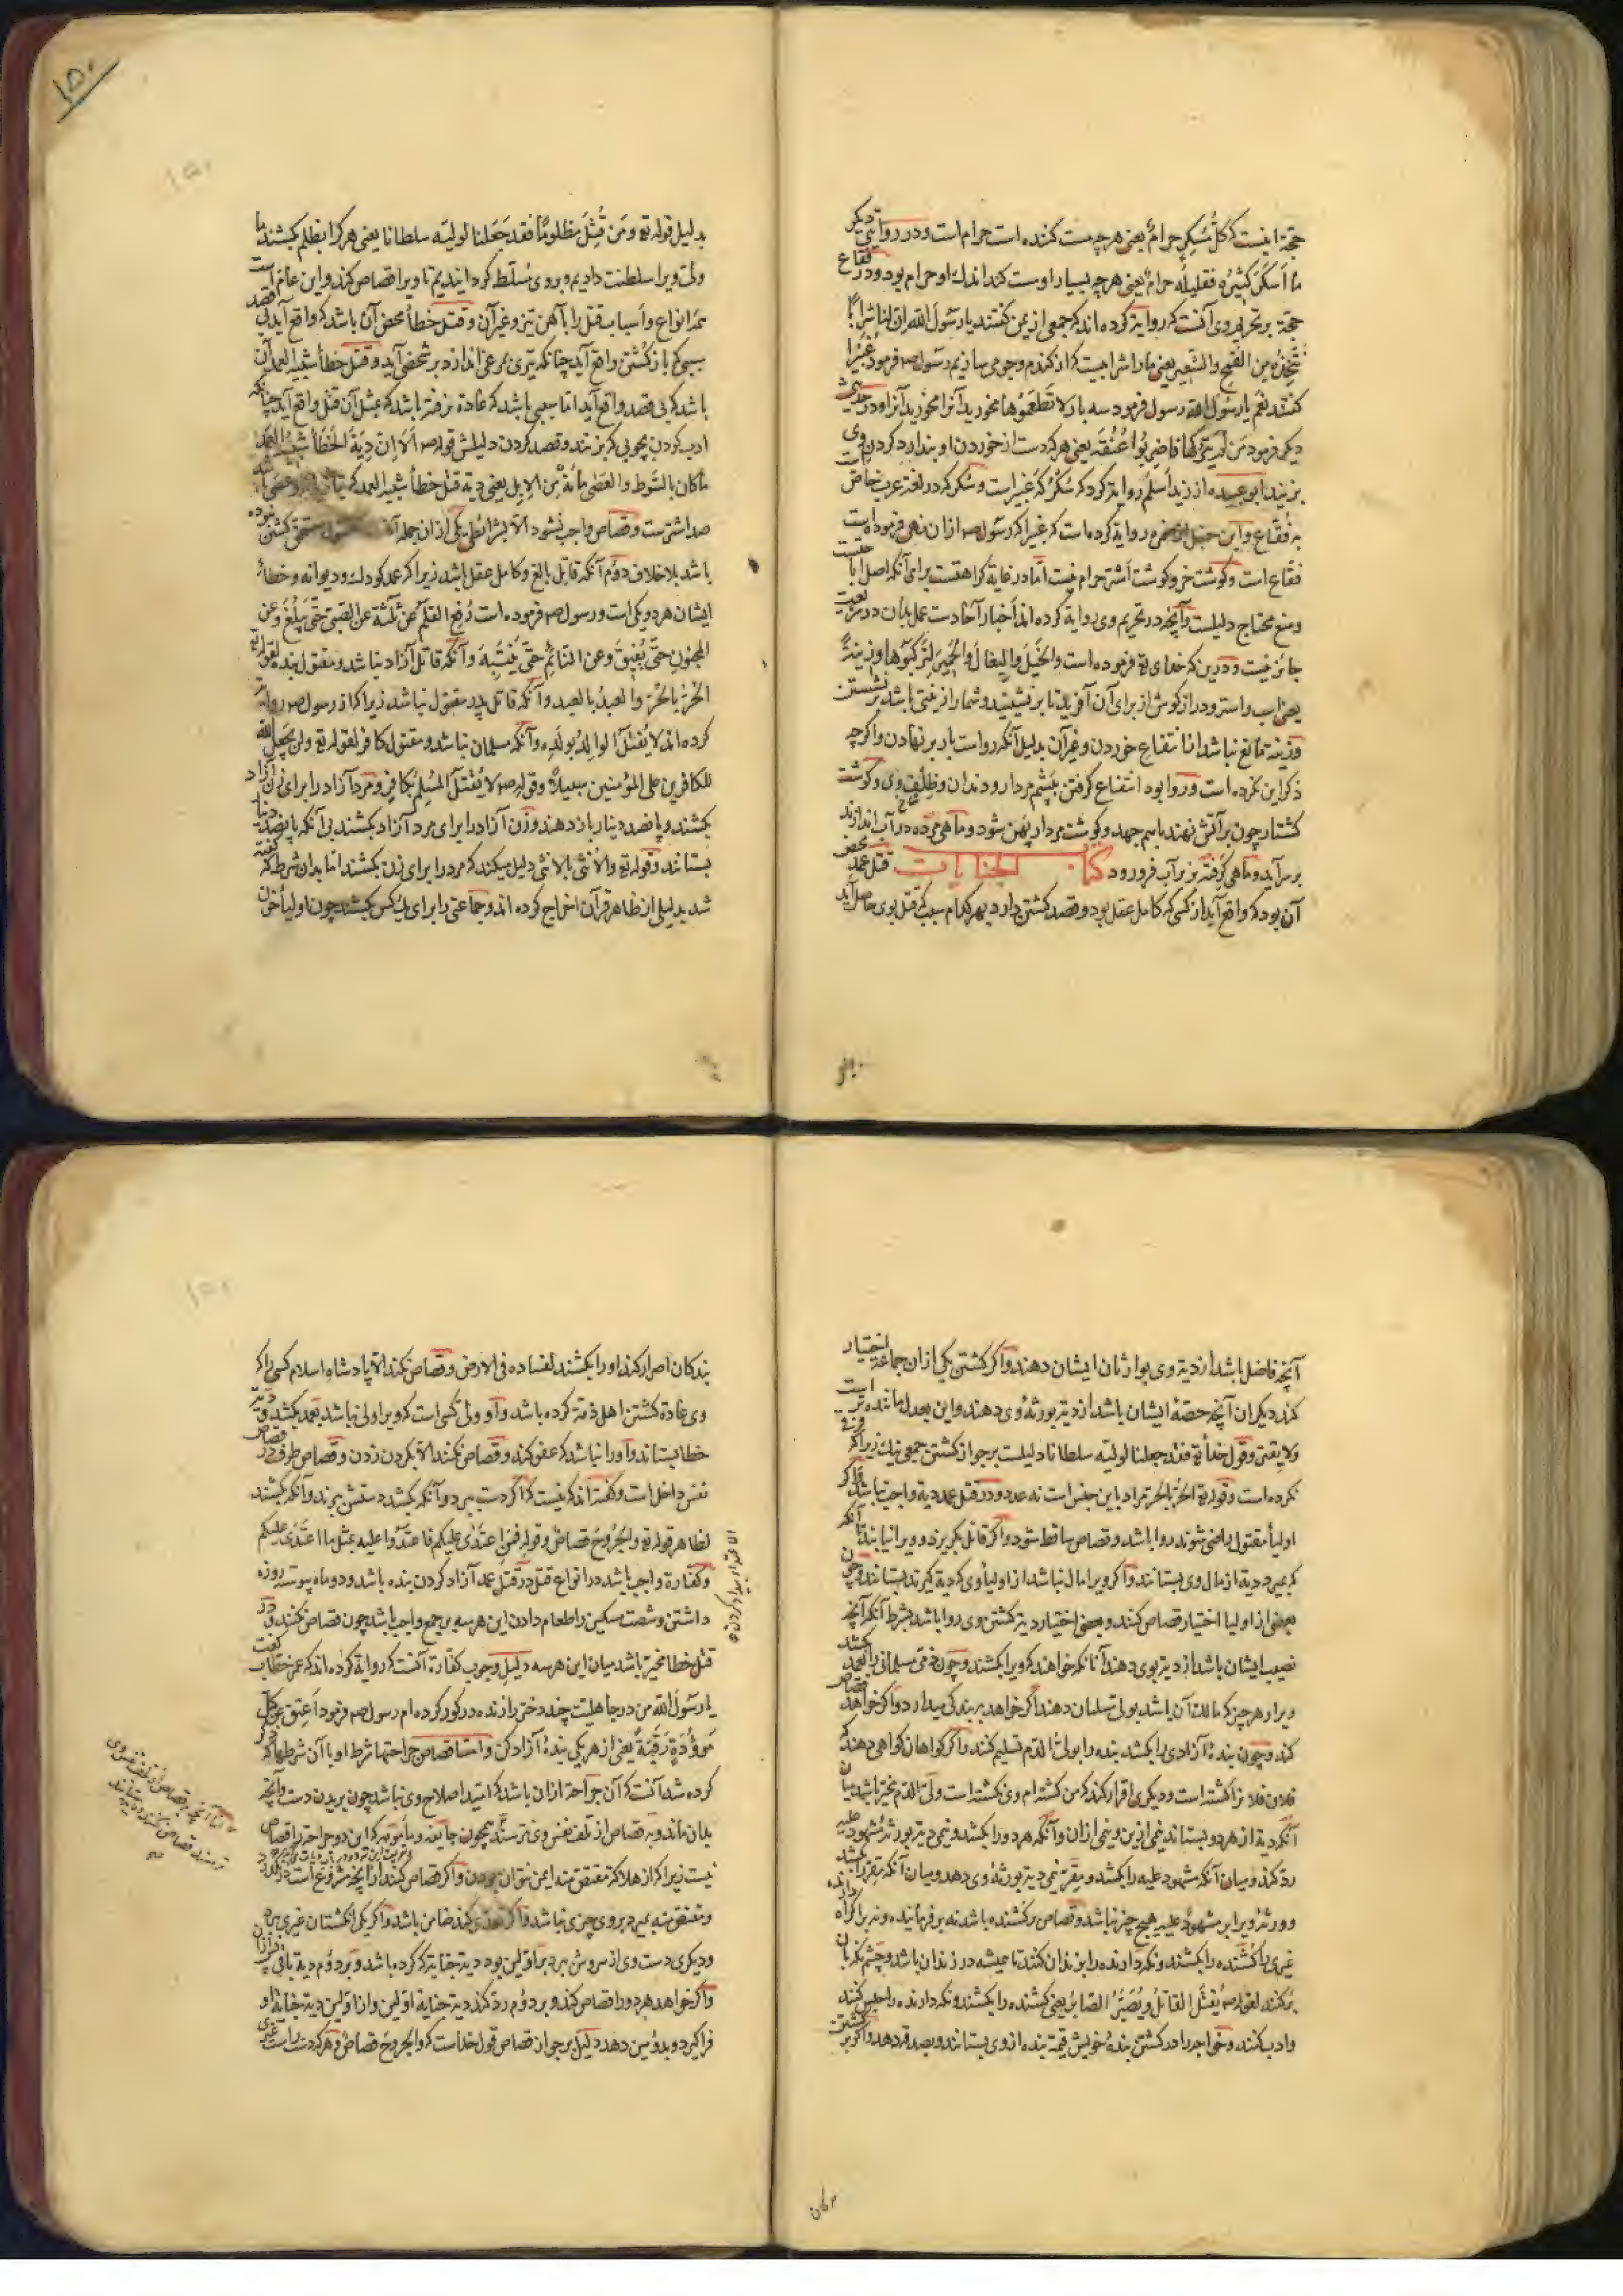 حجة اینست که کل مُسکِرٍ حرامٌ یعنی هرچه مست کننده است حرام است و در روایتی دیگر
ما أسکَرَ کثیرُه فقلیلُه حرامٌ یعنی هرچه بسیار او مست کند اندک او حرام بود و در فقاع
حجة بر تحریم وی آنست که روایة کرده اند که جمعی از یمن گفتند یا رسول الله ان لنا شراباً
نتّخذه من القمح والشعیر یعنی ما را شرابیست که از گندم و جو می سازیم رسول صم فرمود غُبَیرا
گفتند نعم یا رسول الله رسول فرمود سه بار لا تطعموها مخورید آنرا مخورید آنرا و در حدیث
دیگر فرمود من لم یترکها فاضربوا عنقه یعنی هرکه دست از خوردن او بندارد گردن وی
بزنید ابو عبیده از زید اسلم روایة کرد که سُکُرکَه غبیراست و سکرکه در لغة عرب خاص است
به فقّاع و ابن حنبل از ضمره روایة کرده است که غبیرا که رسول صم ازان نهی فرموده است
فقّاع است و گوشت خر و گوشت اشتر حرام نیست امّا در غایة کراهتست برای آنکه اصل اباحتست
و منع محتاج دلیلست و آنچه در تحریم وی روایة کرده اند اخبار آحادست عمل بدان در شریعت
جائز نیست و درین که خدای تع فرموده است والخیل والبغال والحمیر لترکبوها و زینةً
یعنی اسب و استر و دراز گوش از برای آن آفرید تا بر نشینید و شما را زینتی باشد بر نشستن
و زینة مانع نباشد از انتفاع خوردن و غیر آن بدلیل آنکه رواست بار بر نهادن و اگرچه
ذکر این نکرده است و روا بود انتفاع گرفتن به پشم مردار و دندان و ظلف وی و گوشت
کشتار چون بر آتش نهند باسم جهد و گوشت مردار پهن شود و ماهی مرده در آب اندازند
بر سر آید و ماهی گرفته بزیر آب فرو رود کتاب الجنایات قتل عمد محض
آن بود که واقع آید از کسی که کامل عقل بود و قصد کشتن دارد بهر کدام سبب که قتل بوی حاصل آید
۱۵۰
بدلیل قوله تع ومَن قُتِلَ مظلومًا فقد جَعَلنا لولیّه سلطانا یعنی هرکرا بظلم بکشند ما
ولی ویرا سلطنت دادیم و بر وی مُسلّط گردانیدیم تا ویرا قصاص کند و این عام است
در انواع و أسباب قتل را بآهن تیز و غیر آن و قتل خطأ محض آن باشد که واقع آید بی قصد
سببی که باز کشتن واقع آید چنانکه تیری بمرغی اندازد بر شخصی آید و قتل خطأ شبیه العمد آن
باشد که بی قصد واقع آید امّا سببی باشد که عادة نرفته باشد که بمثل آن قتل واقع آید چنانکه
ادب کردن بچوبی که بزنند و قصد کردن دلیلش قوله صم اَلا إن دیة الخطأ شبیه العمد
ما کان بالسوط والعصی مائةٌ من الإبل یعنی دیة قتل خطأ شبیه العمد که
صد اشترست و قصاص واجب نشود الّا بشرائطی یکی ازان جمله آنکه مقتول مستحق کشتن نبوده
باشد بلا خلاف دوّم آنکه قاتل بالغ و کامل عقل باشد زیرا که عمد کودک و دیوانه و خطأ
ایشان هردو یکی است و رسول صم فرموده است رُفِعَ القلَمُ عن ثلثة عن الصبیّ حتّی یبلُغَ وعن
المجنونِ حتّی یُفیقَ وعن النائمِ حتّی ینتبِهَ و آنکه قاتل آزاد نباشد و مقتول بنده لقوله تع
الحُرُّ بالحُرّ والعبدُ بالعبد و آنکه قاتل پدر مقتول نباشد زیرا که از رسول صم روایة
کرده اند لا یُقتَلُ الوالِدُ بولَدِه و آنکه مسلمان نباشد و مقتول کافر لقوله تع ولن یجعل الله
للکافرین علی المؤمنین سبیلاً وقوله صم لا یُقتَلُ المُسلِمُ بکافرٍ و مرد آزاد را برای زن آزاد
بکشند و پانصد دینار باز دهند و زن آزاد را برای مرد آزاد بکشند بی آنکه پانصد دینار
بستانند و قوله تع والأنثی بالأنثی دلیل میکند که مرد را برای زن نکشند امّا بدان شرط که گفته
شد بدلیلی از ظاهر قرآن اخراج کرده اند و جماعتی را برای یک کس بکشند چون اولیأ خون
آنچه فاضل باشد از دیة وی بوارثان ایشان دهند و اگر کشتن یکی ازان جماعة اختیار
کنند دیگران آنچه حصّهٔ ایشان باشد از دیة بورثهٔ وی دهند و این بعدل ماننده تر است
ولایقتر و قول خدأ تع فقد جعلنا لولیّه سلطانا دلیلست بر جواز کشتن جمعی بیک زیرا که فرق
نکرده است و قوله تع الحُرّ بالحُرّ مراد باین جنس است نه عدد و در قتل عمد دیة واجب نباشد اگر
اولیأ مقتول راضی شوند روا باشد و قصاص ساقط شود و اگر قاتل بگریزد و ویرا نیابند تا آنکه
که بمیرد دیة از مال وی بستانند و اگر ویرا مال نباشد از اولیأ وی که دیة گیرند بستانند و چون
بعضی از اولیا اختیار قصاص کنند و بعضی اختیار دیة کشتن وی روا باشد بشرط آنکه آنچه
نصیب ایشان باشد از دیة بوی دهند آنانکه خواهند که ویرا بکشند و چون ذمّی مسلمانی را بعمد بکشد
ویرا و هر چیز که مالک آن باشد بولی مسلمان دهند اگر خواهد به بندگی میدارد و اگر خواهد قصاص
کند و چون بندهٔ آزادی را بکشد بنده را بولیّ الدّم تسلیم کنند و اگر گواهان گواهی دهند که
فلان فلانرا کشته است و دیگری اقرار کند که من کشته ام وی نکشته است ولیّ الدّم مخیّر باشد میان
آنکه دیة از هردو بستاند نیمی ازین و نیمی ازان و آنکه هردو را بکشد و نیم دیة بورثهٔ مشهود علیه
ردّ کند و میان آنکه مشهود علیه را بکشد و مقرّ نیمی دیة بورثهٔ وی دهد و میان آنکه مقرّ را بکشد
و ورثهٔ ویرا بر مشهود علیه هیچ چیز نباشد و قصاص بر کشنده باشد نه بر فرماینده و نه بر اکراه
غیری را کشنده را بکشند و نگه دارنده را بزندان کنند تا همیشه در زندان باشد و چشم نگهبان
برکنند لقوله صم یُقتَلُ القاتلُ ویُصبَرُ الصابرُ یعنی کشنده را بکشند و نگه دارنده را حبس کنند
وادب کنند و خواجه را در کشتن بندهٔ خویش قیمة بنده ازوی بستانند و بصدقه دهند و اگر بر کشتن
بندگان اصرار کند او را بکشند لفساده فی الارض و قصاص نکند الّا پادشاه اسلام کسی را که
وی عادة کشتن اهل ذمّة کرده باشد و او ولی کسی است که ویرا ولی نباشد بعمد بکشد و دیة
خطا بستاند و او را نباشد که عفو کند و قصاص نکند الّا بگردن زدن و قصاص طرف در قصاص
نفس داخل است و گفته اند که نیست که اگر دست ببرد و آنگه بکشد دستش ببرند و آنگه بکشند
لظاهر قوله تع والجُروحَ قصاصٌ وقوله فمن اعتدَی علیکم فاعتدُوا علیه بمثل ما اعتدی علیکم
و کفّارة واجب باشد در انواع قتل در قتل عمد آزاد کردن بنده باشد و دو ماه پیوسته روزه
داشتن و شصت مسکین را طعام دادن این هرسه بر جمع واجب باشد چون قصاص نکنند و در
قتل خطا مخیّر باشد میان این هرسه دلیل وجوب کفّارة آنست که روایة کرده اند که عمر خطاب گفت
یا رسول الله من در جاهلیت چند دختر را زنده در گور کرده ام رسول صم فرمود أعتِق عن کلّ
مَوؤدَةٍ رَقَبَةً یعنی از هر یکی بندهٔ آزاد کن و امّا قصاص جراحتها شرط او با آن شرطها که ذکر
کرده شد آنست که آن جراحة ازان باشد که امید اصلاح وی نباشد چون بریدن دست و آنچه
بدان ماند و به قصاص از تلف نفس وی نترسند همچون جایفه و مأمومه که این دو جراحة را قصاص
نیست زیرا که از هلاکة مقتص منه ایمن نتوان بودن و اگر قصاص کنند از آنچه مشروع است
و مقتص منه بمیرد بر وی چیزی نباشد و اگر تعدّی کند ضامن باشد و اگر یکی انگشتان غیری ببرد
و دیگری دست وی از سروش ببرد بر اوّلین بود دیة جنایة که کرده باشد و بر دوّم دیة باقی
و اگر خواهد هردو را قصاص کند و بر دوّم ردّ کند دیة جنایة اوّلین و از اوّلین دیة جنایة او
فرا گیرد و بدوّمین دهد دلیل بر جواز قصاص قول خداست که والجروحَ قصاصٌ و هرکه دست راست غیری